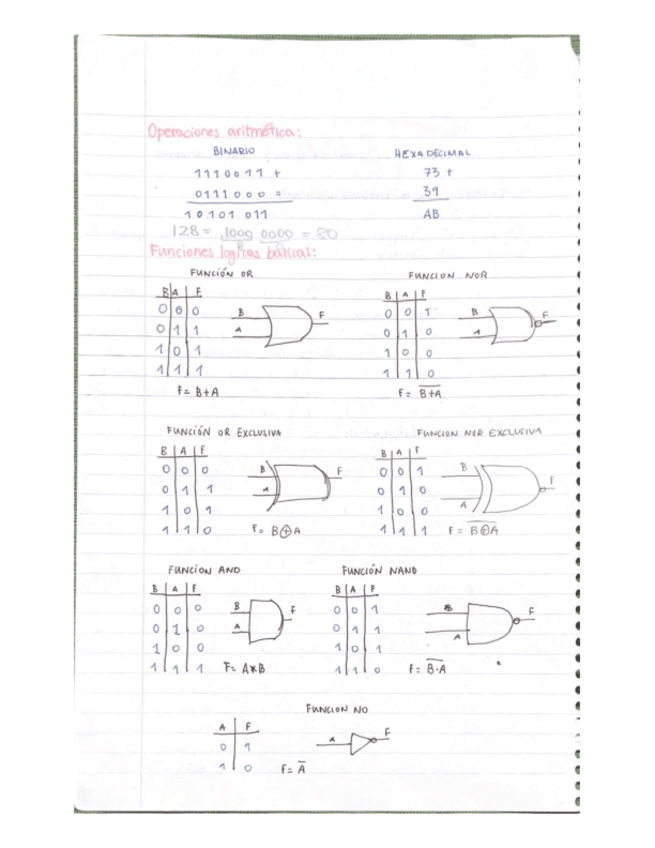 Operaciones aritmética:
BINARIO HEXADECIMAL
1110011 + 73 +
0111000 = 39
10101 011 AB
128 = 1000 0000 = 80
8 0
Funciones logicas básicas:
FUNCIÓN OR FUNCION NOR
B A F B A F
0 0 0 B A F 0 0 1 B A F
0 1 1 0 1 0
1 0 1 1 0 0
1 1 1 1 1 0
F = B+A F = \overline{B+A}
FUNCIÓN OR EXCLUSIVA FUNCION NOR EXCLUSIVA
B A F B A F
0 0 0 B A F 0 0 1 B A F
0 1 1 0 1 0
1 0 1 1 0 0
1 1 0 F = B⊕A 1 1 1 F = \overline{B⊕A}
FUNCION AND FUNCIÓN NAND
B A F B A F
0 0 0 B A F 0 0 1 B A F
0 1 0 0 1 1
1 0 0 1 0 1
1 1 1 F = A*B 1 1 0 F = \overline{B·A}
FUNCION NO
A F
0 1 A F
1 0 F = \overline{A}